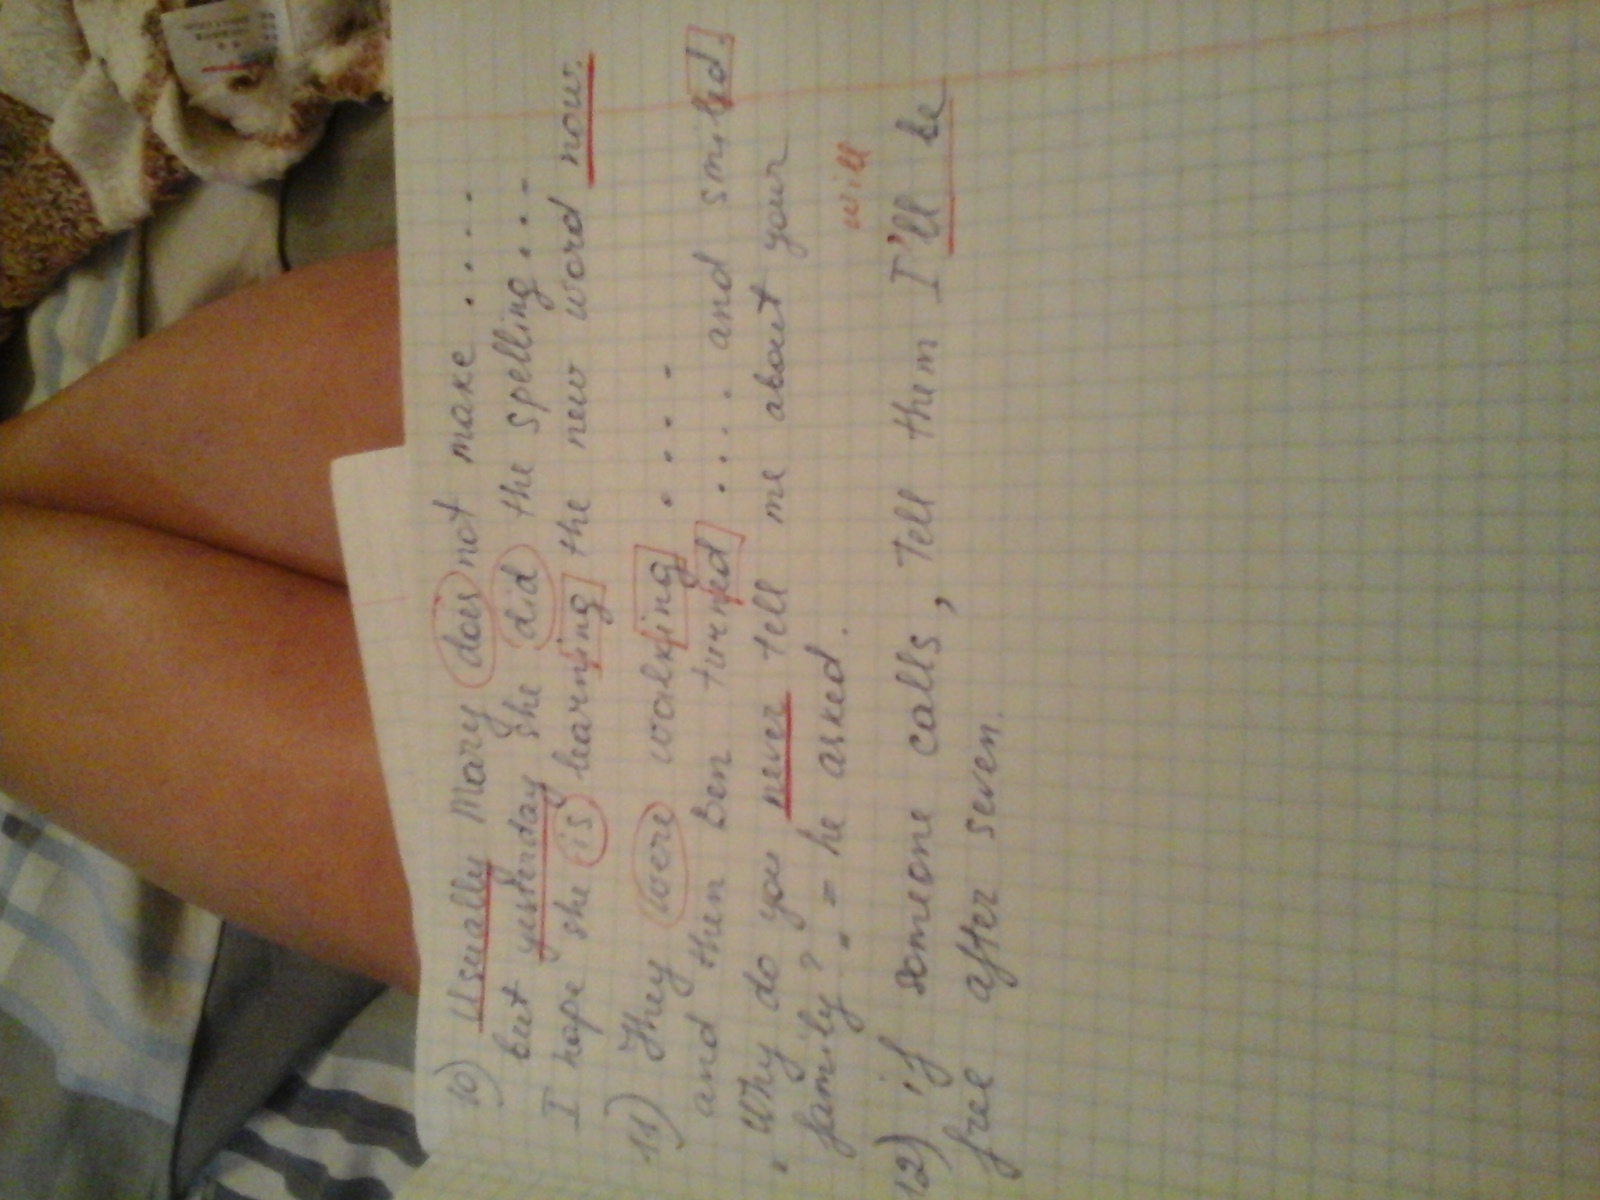 10) Usually Mary does not make ....
but yesterday she did the spelling ....
I hope she is learning the new word now.
11) They were walking ....
and then Ben turned .... and smiled.
„Why do you never tell me about your
family?" - he asked.
will
12) if someone calls, tell them I'll be
free after seven.